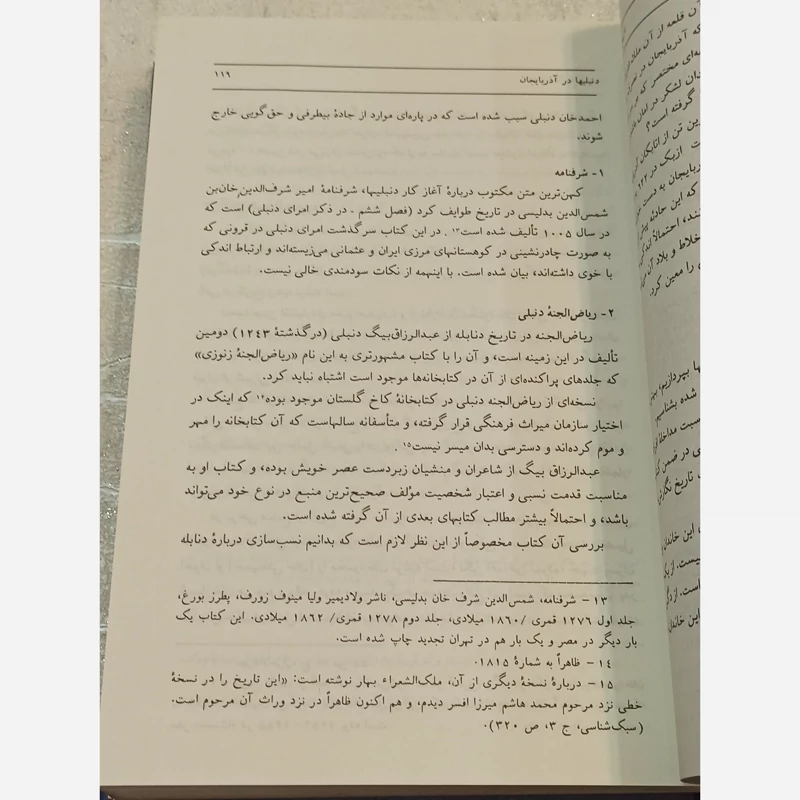 دنبلیها در آذربایجان
۱۱۹
احمدخان دنبلی سبب شده است که در پاره‌ای موارد از جادهٔ بیطرفی و حق‌گویی خارج
شوند.
۱- شرفنامه
کهن‌ترین متن مکتوب دربارهٔ آغاز کار دنبلیها، شرفنامهٔ امیر شرف‌الدین خان‌بن
شمس‌الدین بدلیسی در تاریخ طوایف کرد (فصل ششم - در ذکر امرای دنبلی) است که
در سال ۱۰۰۵ تألیف شده است۱۳. در این کتاب سرگذشت امرای دنبلی در قرونی که
به صورت چادرنشینی در کوهستانهای مرزی ایران و عثمانی می‌زیسته‌اند و ارتباط اندکی
با خوی داشته‌اند، بیان شده است. با اینهمه از نکات سودمندی خالی نیست.
۲- ریاض‌الجنهٔ دنبلی
ریاض‌الجنه در تاریخ دنابله از عبدالرزاق‌بیگ دنبلی (درگذشتهٔ ۱۲۴۳) دومین
تألیف در این زمینه است، و آن را با کتاب مشهورتری به این نام «ریاض‌الجنهٔ زنوزی»
که جلدهای پراکنده‌ای از آن در کتابخانه‌ها موجود است اشتباه نباید کرد.
نسخه‌ای از ریاض‌الجنه دنبلی در کتابخانهٔ کاخ گلستان موجود بوده۱۴ که اینک در
اختیار سازمان میراث فرهنگی قرار گرفته، و متأسفانه سالهاست که آن کتابخانه را مهر
و موم کرده‌اند و دسترسی بدان میسر نیست۱۵.
عبدالرزاق بیگ از شاعران و منشیان زبردست عصر خویش بوده، و کتاب او به
مناسبت قدمت نسبی و اعتبار شخصیت مؤلف صحیح‌ترین منبع در نوع خود می‌تواند
باشد، و احتمالاً بیشتر مطالب کتابهای بعدی از آن گرفته شده است.
بررسی آن کتاب مخصوصاً از این نظر لازم است که بدانیم نسب‌سازی دربارهٔ دنابله
۱۳- شرفنامه، شمس‌الدین شرف خان بدلیسی، ناشر ولادیمیر ولیا مینوف زورف، پطرز بورغ،
جلد اول ۱۲۷۶ قمری /۱۸۶۰ میلادی، جلد دوم ۱۲۷۸ قمری/ ۱۸۶۲ میلادی. این کتاب یک
بار دیگر در مصر و یک بار هم در تهران تجدید چاپ شده است.
۱۴- ظاهراً به شمارهٔ ۱۸۱۵.
۱۵- دربارهٔ نسخهٔ دیگری از آن، ملک‌الشعراء بهار نوشته است: «این تاریخ را در نسخهٔ
خطی نزد مرحوم محمد هاشم میرزا افسر دیدم، و هم اکنون ظاهراً در نزد وراث آن مرحوم است.
(سبک‌شناسی، ج ۳، ص ۳۲۰).